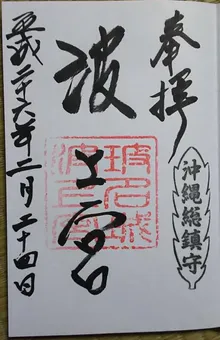 奉拝
沖縄総鎮守
波上宮
平成二十六年二月二十四日